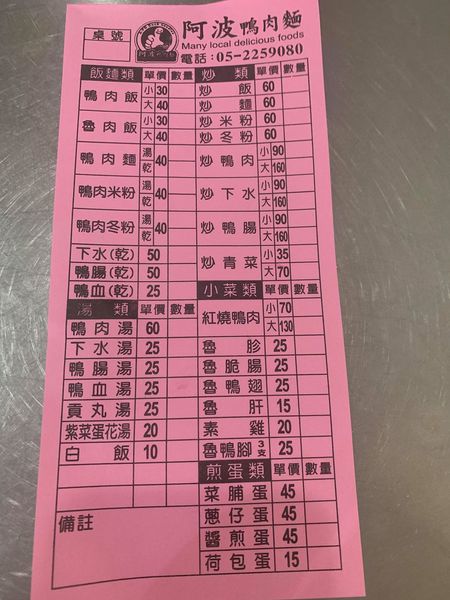 桌號
阿波鴨肉麵
Many local delicious foods
電話:05-2259080
飯麵類 單價 數量
鴨肉飯 小 30 大 40
魯肉飯 小 30 大 40
鴨肉麵 湯 乾 40
鴨肉米粉 湯 乾 40
鴨肉冬粉 湯 乾 40
下水(乾) 50
鴨腸(乾) 50
鴨血(乾) 25
湯類 單價 數量
鴨肉湯 60
下水湯 25
鴨腸湯 25
鴨血湯 25
貢丸湯 25
紫菜蛋花湯 20
白飯 10
備註
炒類 單價 數量
炒飯 60
炒麵 60
炒米粉 60
炒冬粉 60
炒鴨肉 小 90 大 160
炒下水 小 90 大 160
炒鴨腸 小 90 大 160
炒青菜 小 35 大 70
小菜類 單價 數量
紅燒鴨肉 小 70 大 130
魯胗 25
魯脆腸 25
魯鴨翅 25
魯肝 15
素雞 20
魯鴨腳 3支 25
煎蛋類 單價 數量
菜脯蛋 45
蔥仔蛋 45
醬煎蛋 45
荷包蛋 15